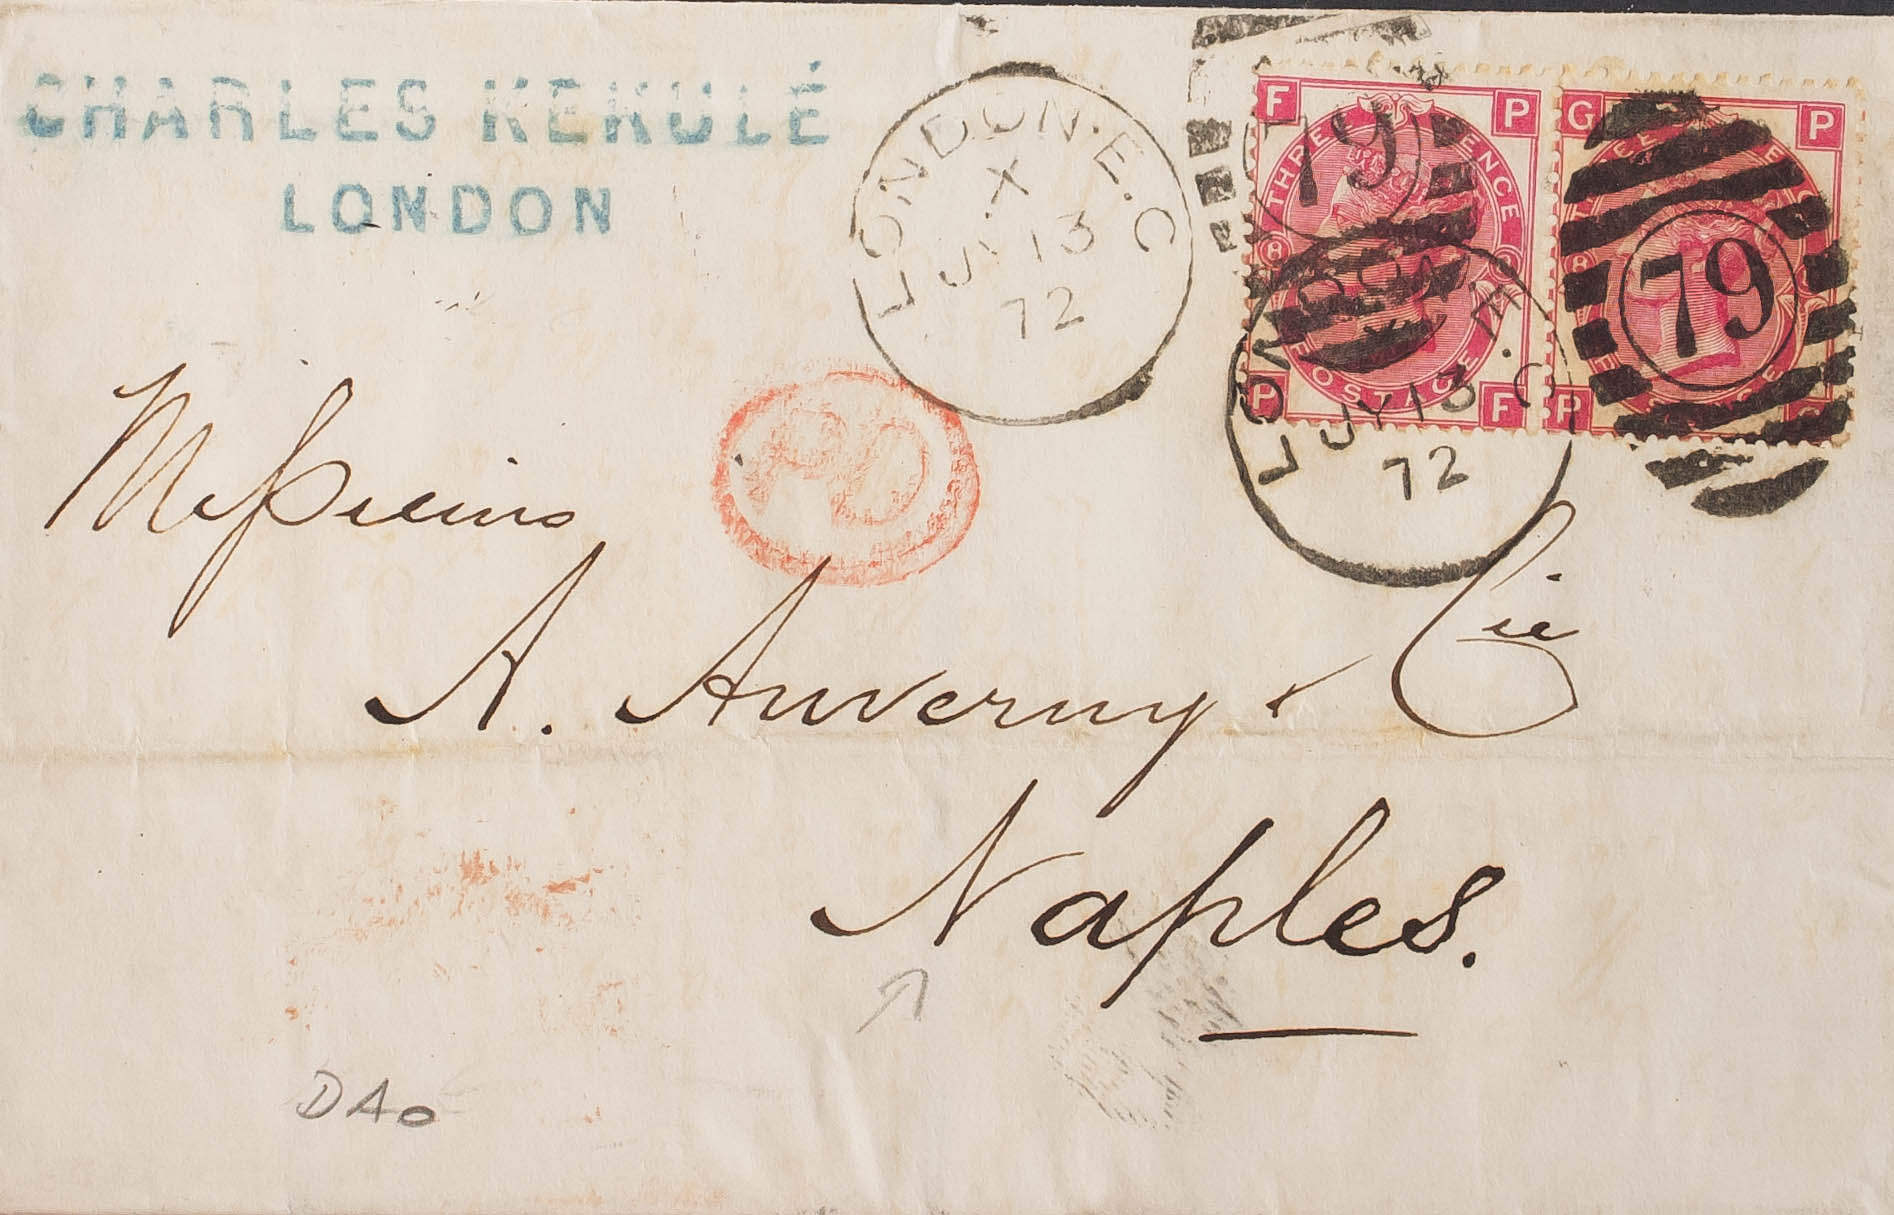 CHARLES KEKULÉ
LONDON
LONDON.E.C
X
JY 13
72
F P
THREE PENCE
POSTAGE
P F
79
LONDON E.C
X
JY 13
72
G P
79
P G
PD
Messieurs
A. Auverny & Cie
Naples.
DAO